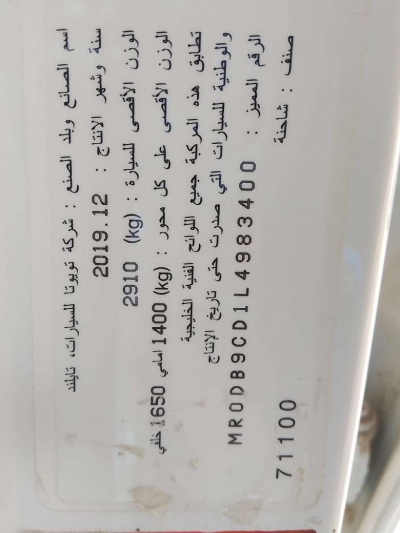 اسم الصانع وبلد الصنع : شركة تويوتا للسيارات، تايلند
سنة وشهر الانتاج : 2019.12
الوزن الأقصى للسيارة : (kg) 2910
الوزن الأقصى على كل محور : (kg) 1400 امامي 1650 خلفي
تطابق هذه المركبة جميع اللوائح الفنية الخليجية
والوطنية للسيارات التي صدرت حتى تاريخ الإنتاج
الرقم المميز : MR0DB9CD1L4983400
صنف : شاحنة
71100